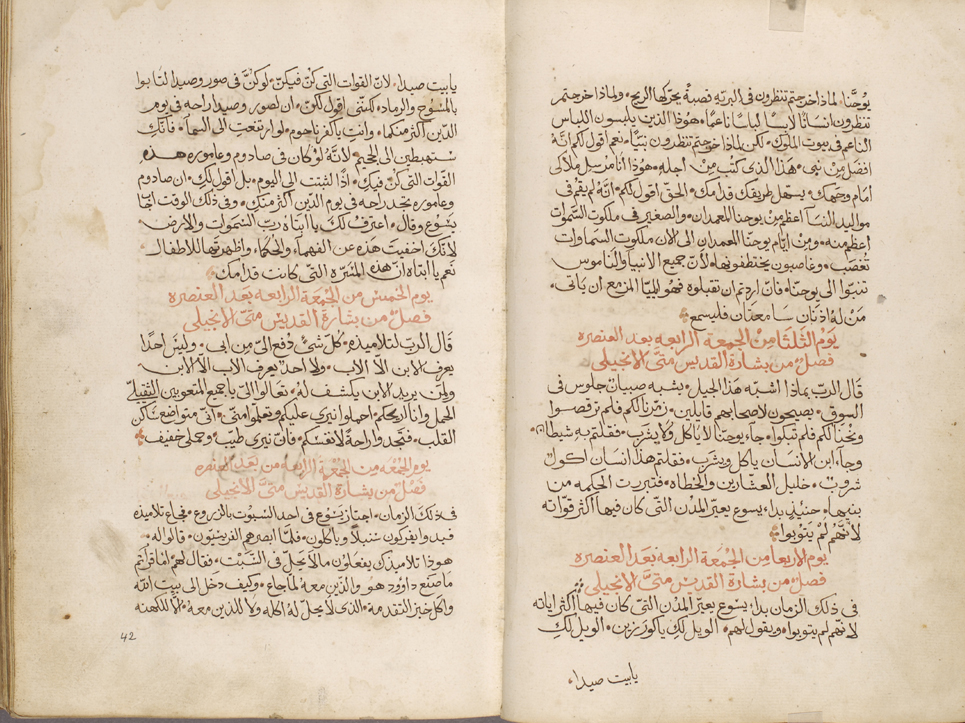 يوحنا. لماذا خرجتم تنظرون في البريه قصبةً يحركها الريح. ولماذا خرجتم
تنظرون انسانًا لابسًا لباسًا ناعمًا. هوذا الذين يلبسون اللباس
الناعم في بيوت الملوك. لكن لماذا خرجتم تنظرون نبيًا. نعم اقول لكم انهُ
افضل من نبي. هذا الذى كتب من اجله. هوذا انا مرسل ملاكى
امام وجهك. يسهل طريقك قدامك. الحق اقول لكم. انهُ لم يقم فى
مواليد النسآ اعظم من يوحنا المعمدان. والصغير في ملكوت السموات
اعظم منه. ومن ايّام يوحنّا المعمدان الى الان ملكوت السماوات
تُغصب. وغاصبون يختطفونها. لأنّ جميع الانبيا والناموس
تنبّوا الى يوحنا. فان اردتم ان تقبلوه فهو ايليّا المزمع ان ياتي.
من لهُ اذنان سامعتان فليسمع
يوم الثلثا من الجمعة الرابعه بعد العنصره
فصلٌ من بشارة القديس متىّ الانجيلى
قال الربّ بماذا اشبه هذا الجيل. يشبه صبيان جلوس فى
السوق. يصيحون لاصحابهم قايلين. زمّرنا لكم فلم ترقصوا
ونحنا لكم فلم تبكوا. جآء يوحنا لا ياكل ولا يشرب. فقلتم به شيطان.
وجاء ابن الانسان ياكل ويشرب. فقلتم هذا انسان اكول
شروب. خليل العشّارين والخطاه. فتبررت الحكمه من
بنيها. حنيئذٍ بداء يسوع يعيّر المدن التى كان فيها اكثر قوّاته
لانهم لم يتوبوا
يوم الاربعا من الجمعة الرابعه بعد العنصره
فصلٌ من بشارة القديس متىّ الانجيلى
فى ذلك الزمان بداء يسوع يعيّر المدن التىّ كان فيها اكثر اياته
لانهّم لم يتوبوا. ويقول لهم. الويل لكِ ياكورزين. الويل لكِ
يابيت صيداء
يابيت صيداء. لانّ القوات التى كنّ فيكنّ. لو كنَّ فى صور وصيدا لتابوا
بالمسوح والرماد. لكننّى اقول لكنّ. ان لصور وصيدا راحه فى يوم
الدين اكثر منكما. وانتِ ياكفرناحوم. لو ارتفعت الى السمآء. فانّك
ستهبطين الى الجحيم. لانّهُ لو كان فى صادوم وعاموره هذه
القوات التى كنّ فيك. اذًا لثبتت الى اليوم. بل اقول لكِ. ان صادوم
وعاموره تجد راحه فى يوم الدين اكثر منك. وفى ذلك الوقت اجاب
يسوع وقال. اعترف لك يا ابتاه ربّ السموات والارض.
لانّك اخفيت هذه عن الفهمآء والحكماء. واظهرتها للاطفال.
نعم يا ابتاه انّ هذه المسّرّه التى كانت قدامك
يوم الخميس من الجمعة الرابعه بعد العنصره
فصلٌ من بشارة القديس متىّ الانجيلى
قال الربّ لتلاميذه. كلّ شيٍ دُفع الىّ من ابى. وليس احدًا
يعرف الابن الاّ الاب. ولا احد يعرف الاب الاّ الابن.
ولمن يريد الابن يكشف لهُ. تعالوا الىّ ياجميع المتعوبين الثقيلىّ
الحمل وانا اريحكم. احملوا نيرى عليكم وتعلموا منّى. انّى متواضع ساكن
القلب. فتجدوا راحةً لانفسكم. فانّ نيرى طيّب. وحملى خفيف
يوم الجمعه من الجمعة الرابعه من بعد العنصره
فصلٌ من بشارة القديس متىّ الانجيلى
فى ذلك الزمان. اجتاز يسوع فى احد السبوت بالزروع. فجاع تلاميذه
فبدوا يفركون سنبلاً وياكلون. فلمّا ابصرهم الفريسيّون. قالوا لهُ.
هوذا تلاميذك يفعلون ما لا يحلّ فى السّبت. فقال لهم اما قراتم
ما صنع داوود هو والذين معهُ لما جاع. وكيف دخل الى بيت الله
واكل خبز التقدمة. الذى لا يحلّ لهُ اكله ولا للذين معهُ. الاّ للكهنة
42